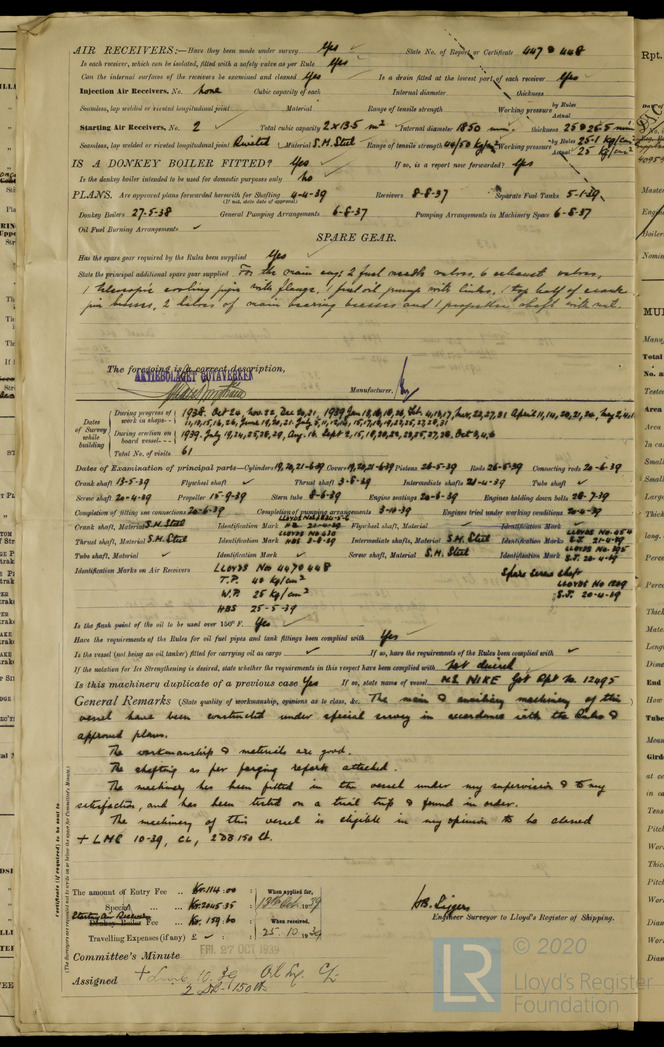 AIR RECEIVERS:—Have they been made under survey Yes ✓ State No. of Report or Certificate 447 & 448
Is each receiver, which can be isolated, fitted with a safety valve as per Rule Yes ✓
Can the internal surfaces of the receivers be examined and cleaned Yes ✓ Is a drain fitted at the lowest part of each receiver Yes ✓
Injection Air Receivers, No. none Cubic capacity of each Internal diameter thickness
Seamless, lap welded or riveted longitudinal joint Material Range of tensile strength Working pressure by Rules Actual
Starting Air Receivers, No. 2 ✓ Total cubic capacity 2x13.5 m³ Internal diameter 1850 mm. thickness 25 & 26.5 mm
Seamless, lap welded or riveted longitudinal joint Riveted Material S.M. Steel Range of tensile strength 44/50 kg/mm² Working pressure by Rules 25.1 kg/cm² Actual 25 kg/cm²
IS A DONKEY BOILER FITTED? Yes ✓ If so, is a report now forwarded? Yes
Is the donkey boiler intended to be used for domestic purposes only no ✓
PLANS. Are approved plans forwarded herewith for Shafting 4-4-39 Receivers 8-8-37 Separate Fuel Tanks 5-1-39
(If not, state date of approval)
Donkey Boilers 27-5-38 General Pumping Arrangements 6-8-37 Pumping Arrangements in Machinery Space 6-8-37
Oil Fuel Burning Arrangements ✓
SPARE GEAR.
Has the spare gear required by the Rules been supplied Yes ✓
State the principal additional spare gear supplied For the main eng: 2 fuel needle valves, 6 exhaust valves,
1 telescopic cooling pipe with flange, 1 fuel oil pump with links, 1 top half of crank
pin brasses, 2 halves of main bearing brasses and 1 propeller shaft with nut.
The foregoing is a correct description,
AKTIEBOLAGET GÖTAVERKEN
Manufacturer.
Dates of Survey while building
During progress of work in shops-- 1938. Oct 24, Nov. 22, Dec 20, 21, 1939
During erection on board vessel--- 1939. July 19, 24, 25, 28, 29, Aug. 16, Sept 2, 15, 18, 20, 22, 23, 25, 27, 28, Oct 3, 4, 6
Total No. of visits 61
Dates of Examination of principal parts—Cylinders 19, 20, 21-6-39 Covers 19, 20, 21-6-39 Pistons 26-5-39 Rods 26-5-39 Connecting rods 20-6-39
Crank shaft 13-5-39 Flywheel shaft ✓ Thrust shaft 3-8-39 Intermediate shafts 21-4-39 Tube shaft ✓
Screw shaft 20-4-39 Propeller 15-9-39 Stern tube 8-6-39 Engine seatings 20-6-39 Engines holding down bolts 28-7-39
Completion of fitting sea connections 20-6-39 Completion of pumping arrangements 3-10-39 Engines tried under working conditions
Crank shaft, Material S.M. Steel Identification Mark Flywheel shaft, Material ✓ Identification Mark ✓
Thrust shaft, Material S.M. Steel Identification Mark HBS 3-8-39 Intermediate shafts, Material S.M. Steel Identification Marks S.J. 21-4-39
Tube shaft, Material ✓ Identification Mark ✓ Screw shaft, Material S.M. Steel Identification Mark S.J. 20-4-39
Identification Marks on Air Receivers LLOYDS No 447 & 448
T.P. 40 kg/cm²
W.P. 25 kg/cm²
HBS 25-5-39
Spare Screw shaft
LLOYDS No 1209
S.J. 20-4-39
Is the flash point of the oil to be used over 150° F. Yes ✓
Have the requirements of the Rules for oil fuel pipes and tank fittings been complied with Yes ✓
Is the vessel (not being an oil tanker) fitted for carrying oil as cargo ✓ If so, have the requirements of the Rules been complied with ✓
If the notation for Ice Strengthening is desired, state whether the requirements in this respect have been complied with not desired
Is this machinery duplicate of a previous case Yes If so, state name of vessel M.S. NIKE Got Rpt No 12495
General Remarks (State quality of workmanship, opinions as to class, &c. The main & auxiliary machinery of this
vessel have been constructed under special survey in accordance with the Rules &
approved plans.
The workmanship & materials are good.
The shafting as per forging reports attached.
The machinery has been fitted in the vessel under my supervision & to my
satisfaction, and has been tested on a trial trip & found in order.
The machinery of this vessel is eligible in my opinion to be classed
+ LMC 10-39, CL, 2DB 150 lb.
The amount of Entry Fee .. Kr. 114.00 When applied for,
Special .. Kr. 2045.35 13th Oct. 1939
Starting Air Receivers Donkey Boiler Fee .. Kr. 159.60 When received,
Travelling Expenses (if any) £ ✓ 25.10.1939
H.B. Siggers
Engineer Surveyor to Lloyd's Register of Shipping.
Committee's Minute FRI. 27 OCT 1939
Assigned + Lmc 10.39 Oil Eng. CL
2 DB - 150 lb
© 2020
LR
Lloyd's Register
Foundation